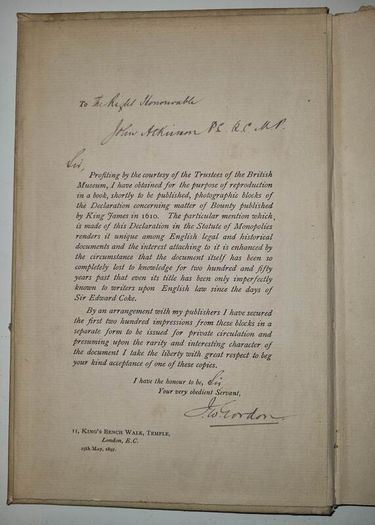 To The Right Honourable
John Atkinson P.C. Q.C. M.P.
Sir,
Profiting by the courtesy of the Trustees of the British
Museum, I have obtained for the purpose of reproduction
in a book, shortly to be published, photographic blocks of
the Declaration concerning matter of Bounty published
by King James in 1610. The particular mention which,
is made of this Declaration in the Statute of Monopolies
renders it unique among English legal and historical
documents and the interest attaching to it is enhanced by
the circumstance that the document itself has been so
completely lost to knowledge for two hundred and fifty
years past that even its title has been only imperfectly
known to writers upon English law since the days of
Sir Edward Coke.
By an arrangement with my publishers I have secured
the first two hundred impressions from these blocks in a
separate form to be issued for private circulation and
presuming upon the rarity and interesting character of
the document I take the liberty with great respect to beg
your kind acceptance of one of these copies.
I have the honour to be, Sir
Your very obedient Servant,
J W Gordon
11, King's Bench Walk, Temple,
London, E.C.
25th May, 1897.